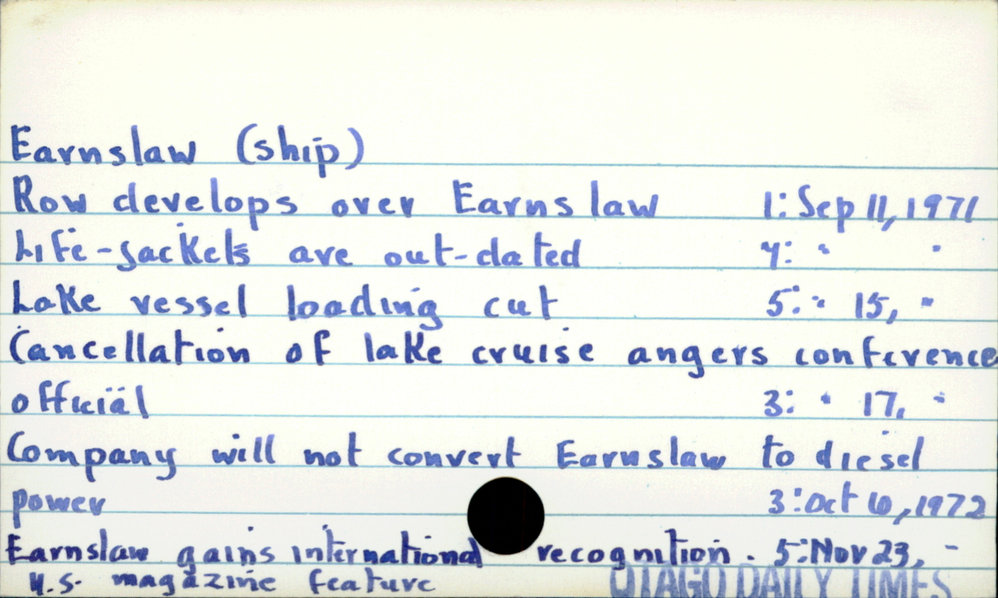 Earnslaw (ship)
Row develops over Earnslaw 1: Sep 11, 1971
Life-jackets are out-dated 4: " "
Lake vessel loading cut 5: " 15, "
Cancellation of lake cruise angers conference
official 3: " 17, "
Company will not convert Earnslaw to diesel
power 3: Oct 6, 1972
Earnslaw gains international recognition. 5: Nov 23, "
U.S. magazine feature
OTAGO DAILY TIMES